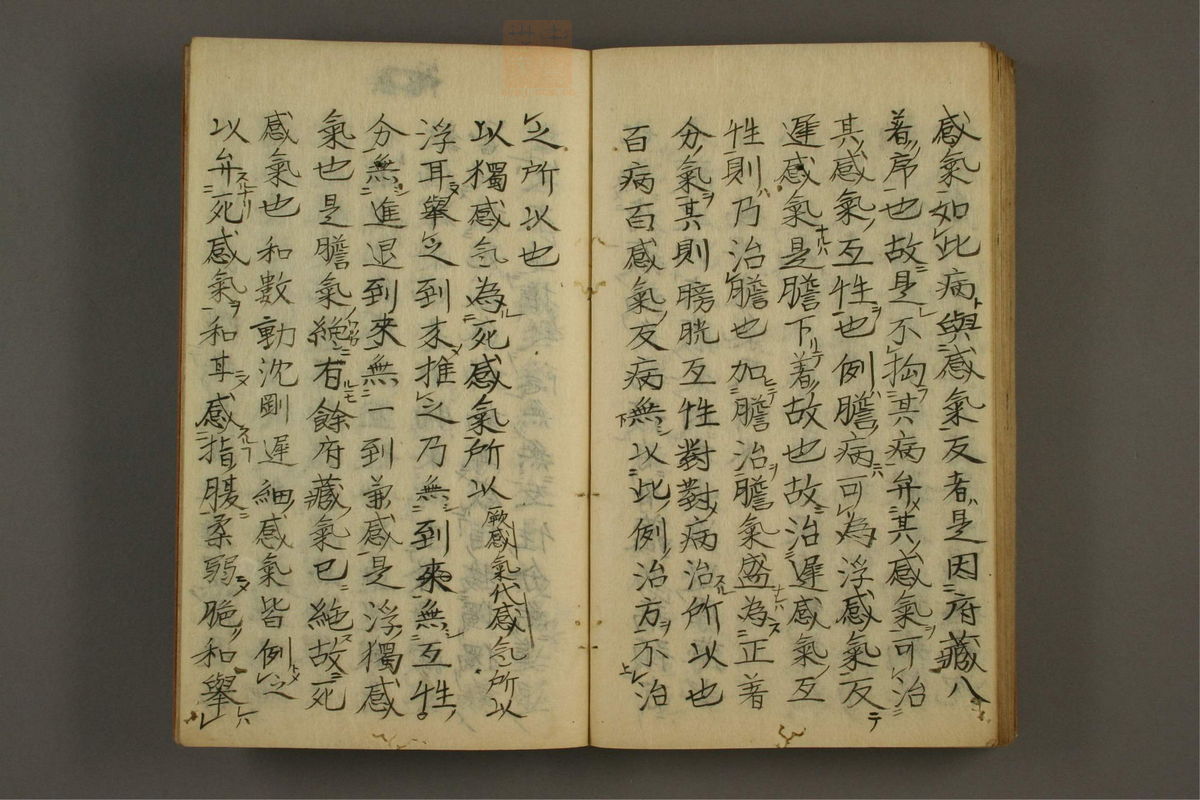 感氣如此病與感氣反者是因府藏八
著席也故是不拘其病弁其感氣可治
其感氣互性也例膽病可為浮感氣反
遲感氣是膽下著故也故治遲感氣互
性則乃治膽也加膽治膽氣盛為正著
分氣其則膀胱互性對對病治所以也
百病百感氣反病無以此例治方不治
之所以也
以獨感氣為死感氣所以厥感氣代感氣所以
浮耳舉之到来推之乃無到來無互性
分無進退到來無一到兼感是浮獨感
氣也是膽氣絶有餘府藏氣已絶故死
感氣也和數動沈剛遲細感氣皆例之
以弁死感氣和耳感指腹柔弱脆和舉